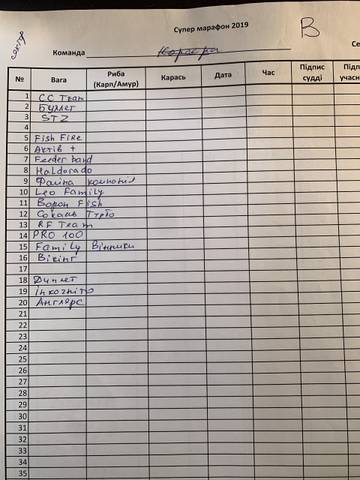 Супер марафон 2019
В
Команда
№ Вага Риба (Карп/Амур) Карась Дата Час Підпис судді Підп учасн
1 CC Team
2 Бумет
3 STZ
4
5 Fish Fire
6 Актів +
7 Feeder band
8 Haldorado
9 Файна компанія
10 Leo Family
11 Ворон Fish
12 Сокаль Турбо
13 RF Team
14 PRO 100
15 Family Вінники
16 Вікінг
17
18 Дуплет
19 Інкогніто
20 Англерс
21
22
23
24
25
26
27
28
29
30
31
32
33
34
35